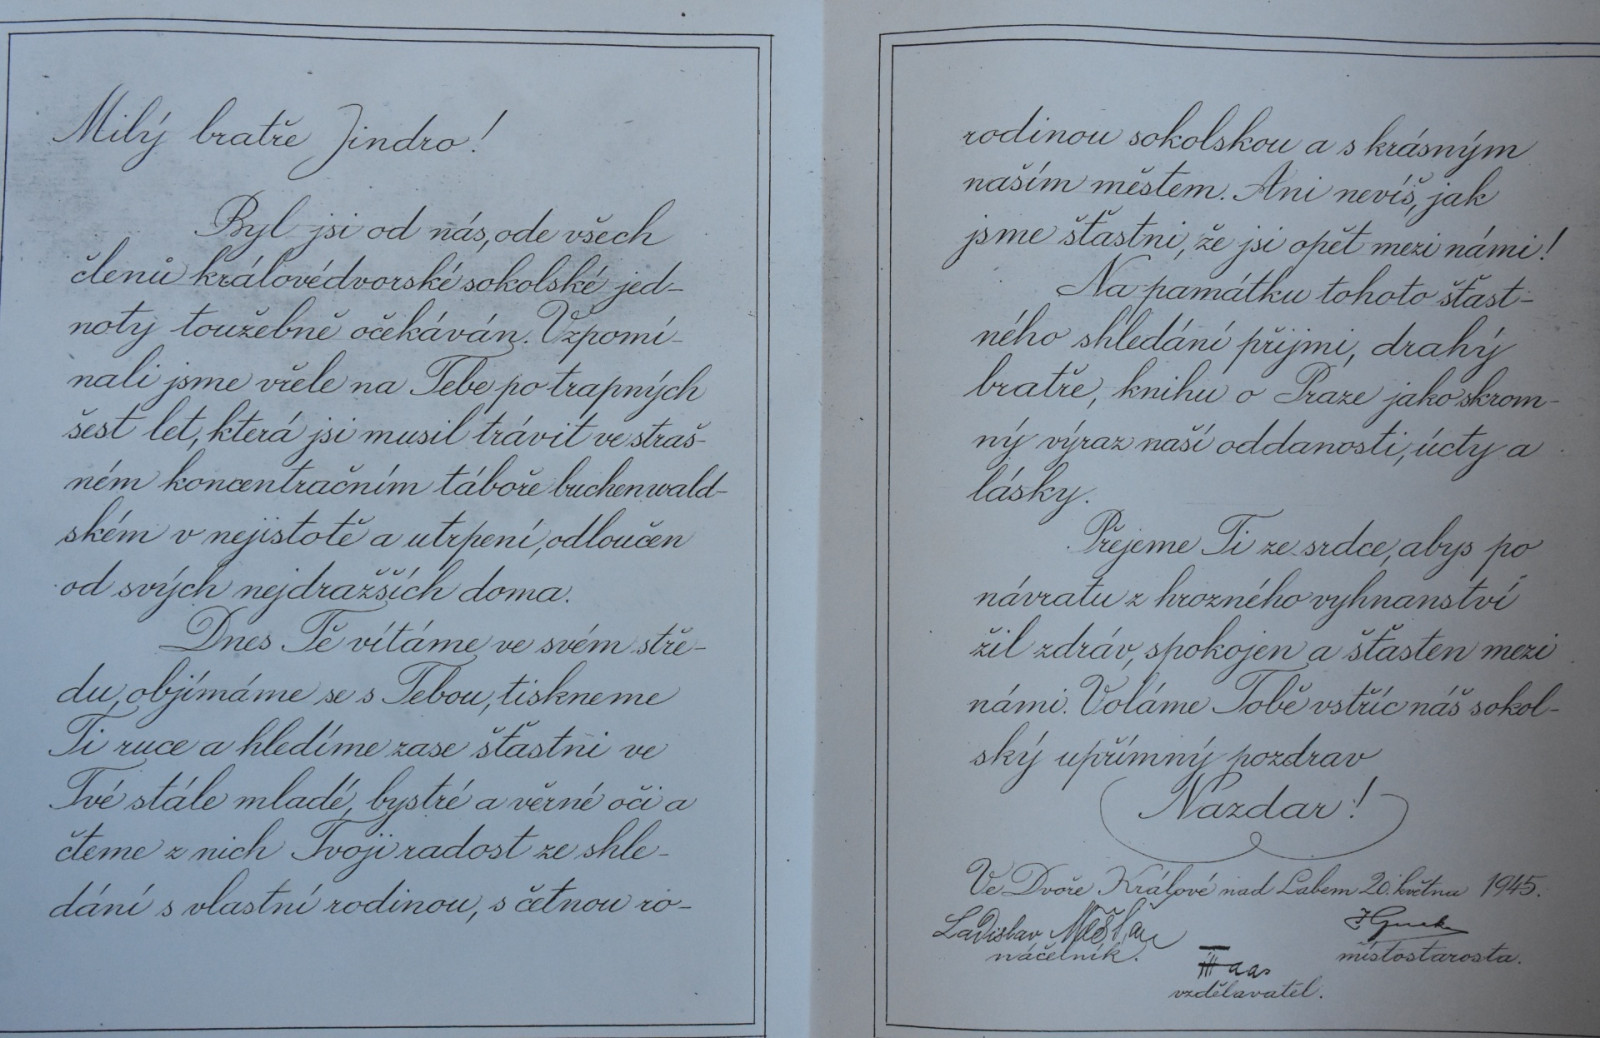 Milý bratře Jindro!
Byl jsi od nás, ode všech
členů královédvorské sokolské jed-
noty toužebně očekáván. Vzpomí-
nali jsme vřele na Tebe po trapných
šest let, která jsi musil trávit ve straš-
ném koncentračním táboře buchenwald-
ském v nejistotě a utrpení, odloučen
od svých nejdražších doma.
Dnes Tě vítáme ve svém stře-
du, objímáme se s Tebou, tiskneme
Ti ruce a hledíme zase šťastni ve
Tvé stále mladé, bystré a věrné oči a
čteme z nich Tvoji radost ze shle-
dání s vlastní rodinou, s četnou ro-
rodinou sokolskou a s krásným
naším městem. Ani nevíš, jak
jsme šťastni, že jsi opět mezi námi!
Na památku tohoto šťast-
ného shledání přijmi, drahý
bratře, knihu o Praze jako skrom-
ný výraz naší oddanosti, úcty a
lásky.
Přejeme Ti ze srdce, abys po
návratu z hrozného vyhnanství
žil zdráv, spokojen a šťasten mezi
námi. Voláme Tobě vstříc náš sokol-
ský upřímný pozdrav
Nazdar!
Ve Dvoře Králové nad Labem 20. května 1945.
Ladislav
náčelník.
Haas
vzdělavatel.
místostarosta.